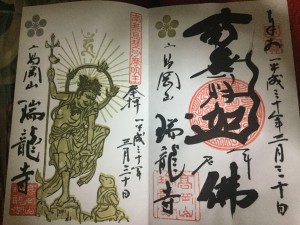 奉拝
平成三十一年三月三十日
南無釋迦牟尼佛
高岡山
瑞龍寺
奉拝
平成三十一年三月三十日
高岡山
瑞龍寺